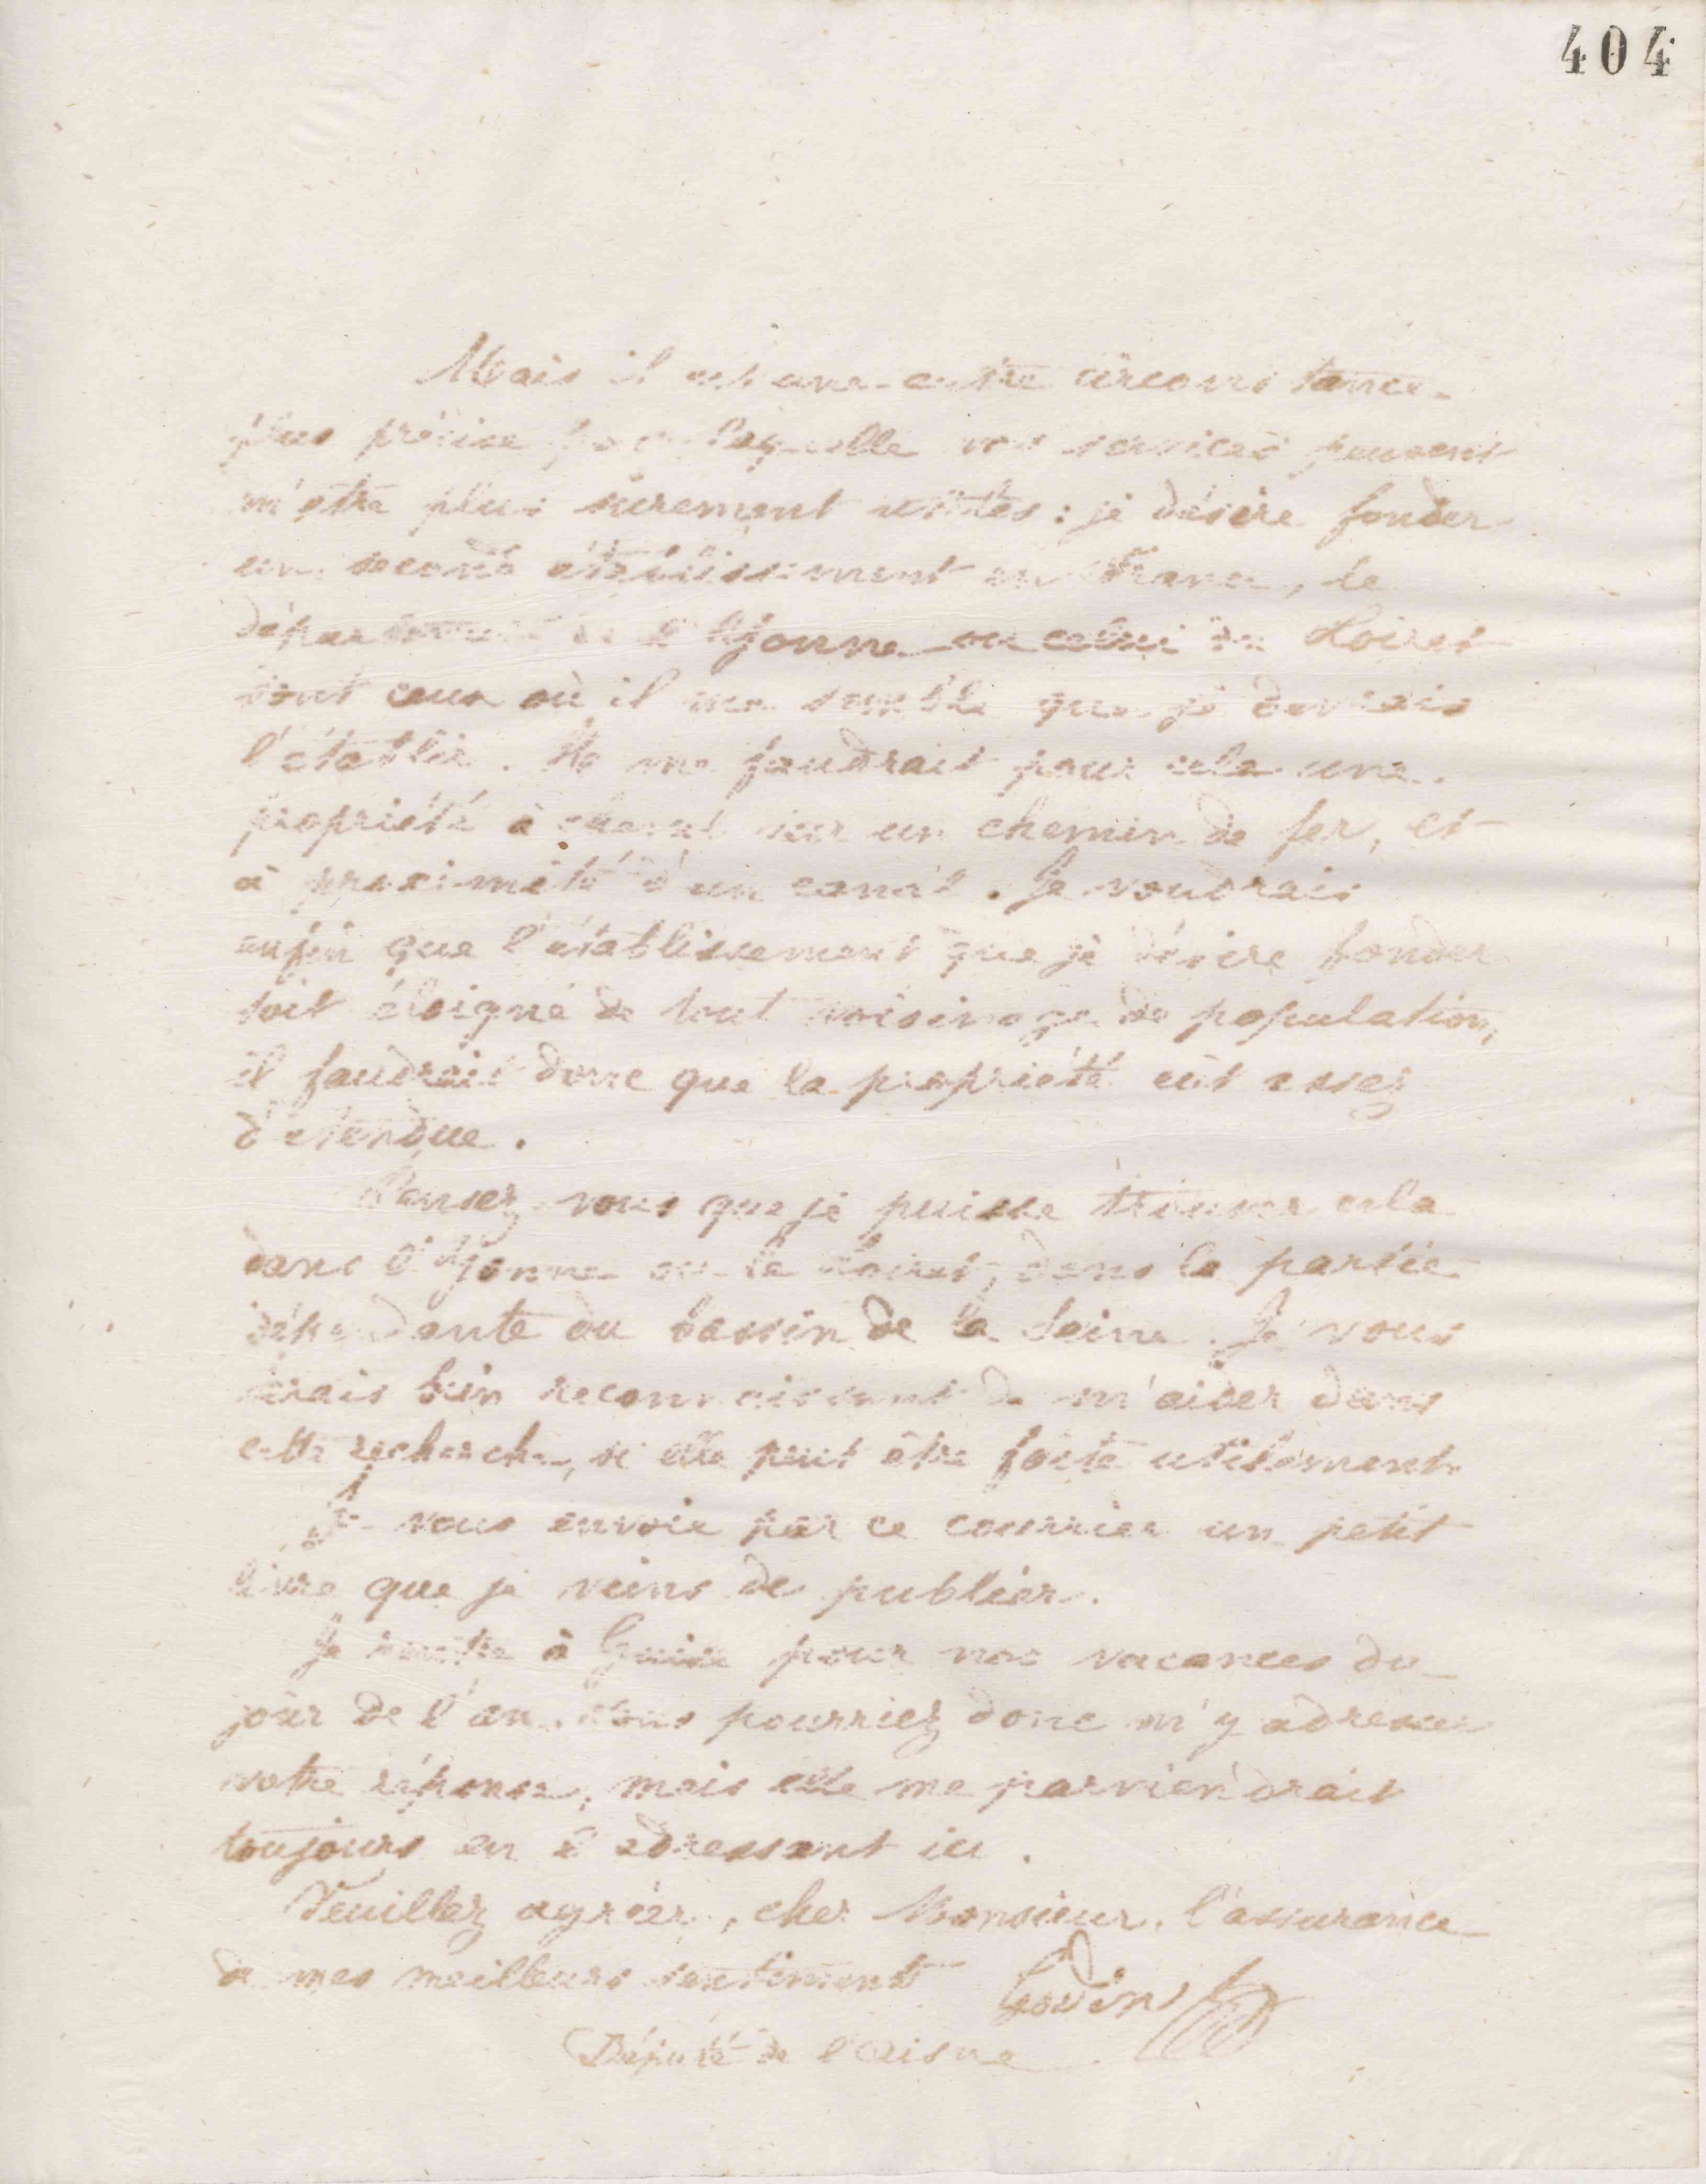 404
Mais il est une autre circonstance
plus précise pour laquelle vos services peuvent
m'être plus sûrement utiles : je désire fonder
un second établissement en France, le
département de l'Yonne ou celui du Loiret
sont ceux où il me semble que je devrais
l'établir. Il me faudrait pour cela une
propriété à cheval sur un chemin de fer, et
à proximité d'un canal. Je voudrais
enfin que l'établissement que je désire fonder
soit éloigné de tout voisinage de population,
il faudrait donc que la propriété eût assez
d'étendue.
Pensez-vous que je puisse trouver cela
dans l'Yonne ou le Loiret, dans la partie
dépendante du bassin de la Seine. Je vous
serais bien reconnaissant de m'aider dans
cette recherche, si elle peut être faite utilement.
Je vous envoie par ce courrier un petit
livre que je viens de publier.
Je rentre à Guise pour nos vacances du
jour de l'an. Vous pourriez donc m'y adresser
votre réponse, mais elle me parviendrait
toujours en l'adressant ici.
Veuillez agréer, cher Monsieur, l'assurance
de mes meilleurs sentiments
Godin
Député de l'Aisne